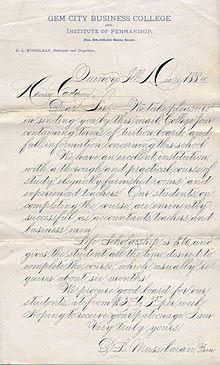 GEM CITY BUSINESS COLLEGE
AND
INSTITUTE OF PENMANSHIP,
D. L. MUSSELMAN, Principal and Proprietor.
Quincy, Ill.
Dear Sir: We take pleasure
in sending you by this mail College Jour
containing terms of tuition board and
full information concerning this school.
We have an excellent institution
with a thorough and practical course of
study, elegantly furnished rooms and
experienced teachers. Our students on
completing the course, are eminently
successful as accountants teachers and
business men.
Life Scholarship is
gives the student all the time desired to
complete the course, which usually re
quires about six months.
We procure good board for our
students, at from per week
Hoping to receive your patronage I am
Very truly yours,
D. L. Musselman, Prin